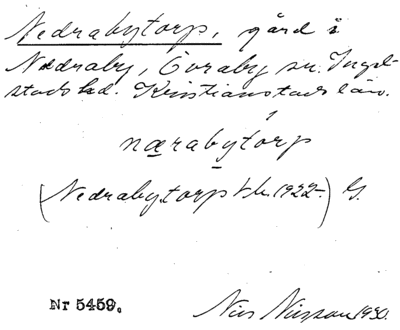 Nedrabytorp, gård i
Nedraby, Övraby sn. Ingel-
stads hd. Kristianstads län.
nærabytorp
(Nedrabytorp tk. 1922) G.
Nr 5459. Nils Nilsson 1930.